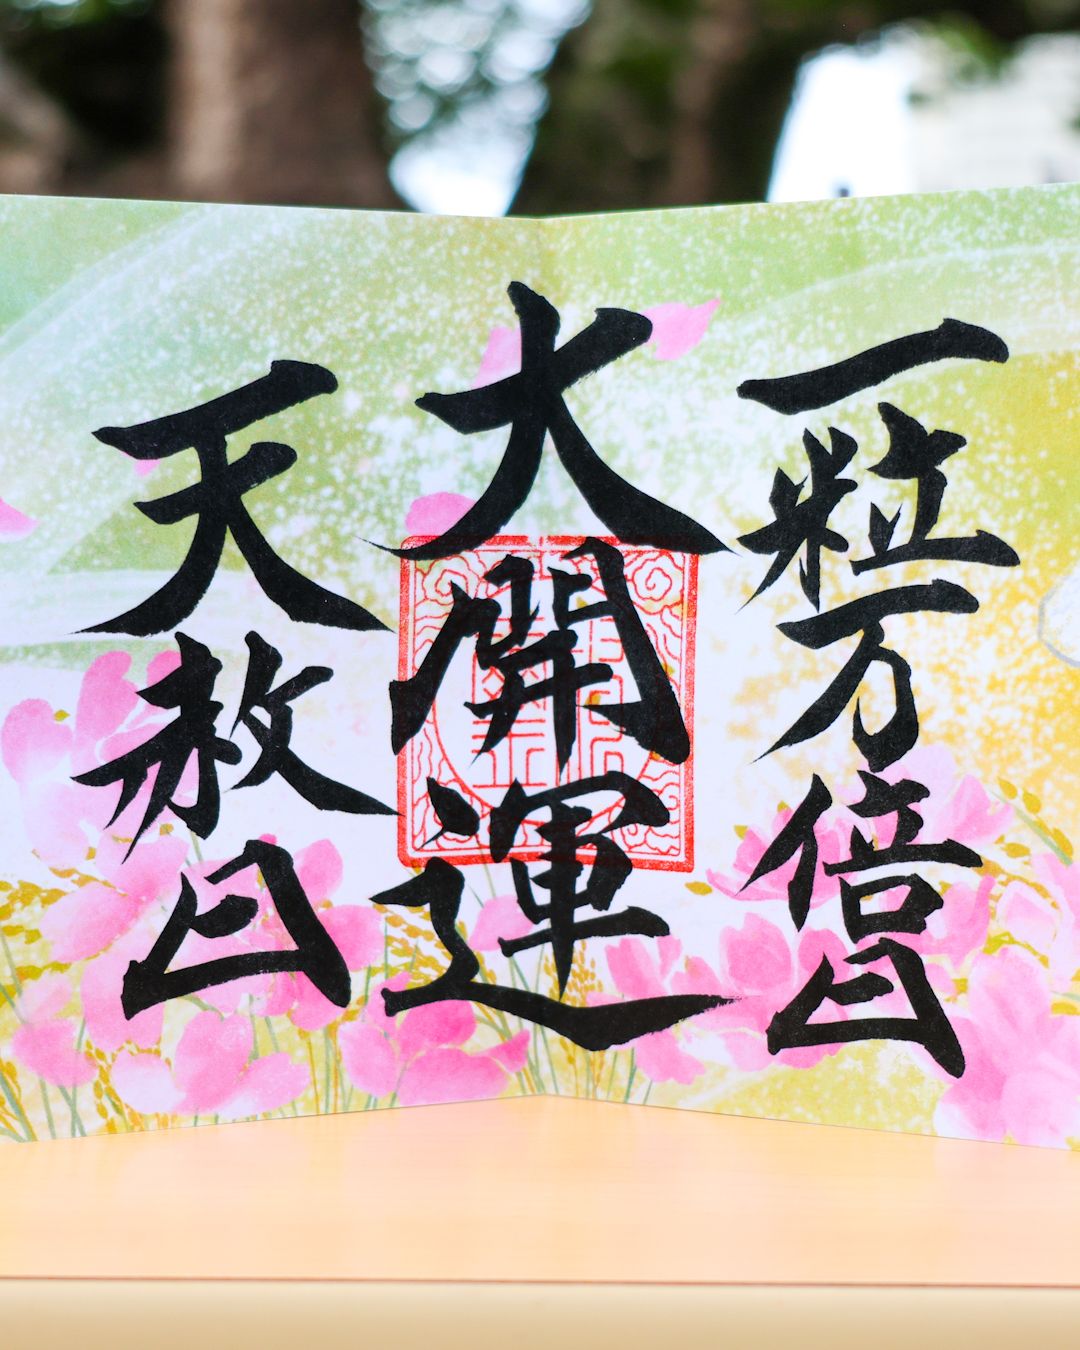 一粒万倍日
大開運
天赦日